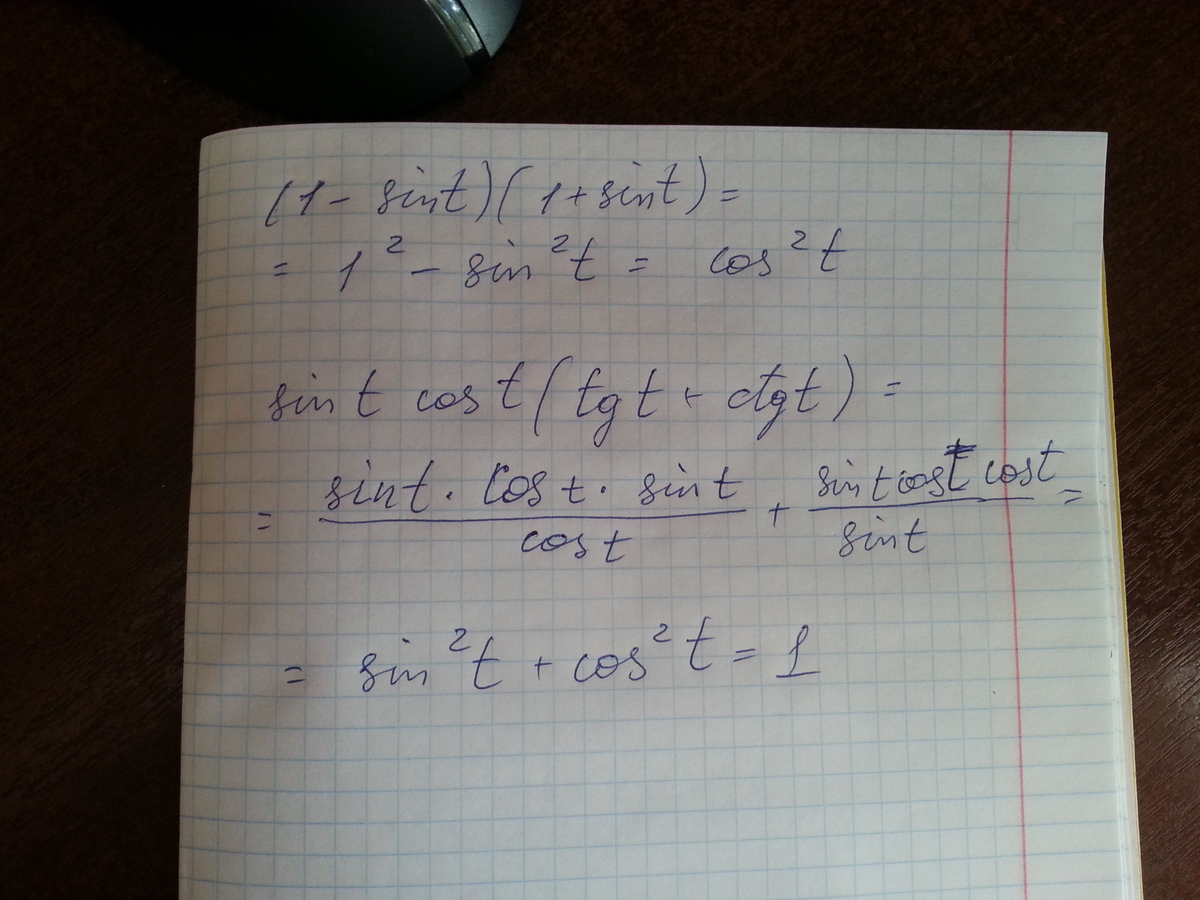 (1 - sint)(1 + sint) =
= 1² - sin²t = cos²t
sin t cos t (tg t + ctg t) =
= \frac{sin t · cos t · sin t}{cos t} + \frac{sin t cos t cos t}{sin t} =
= sin²t + cos²t = 1